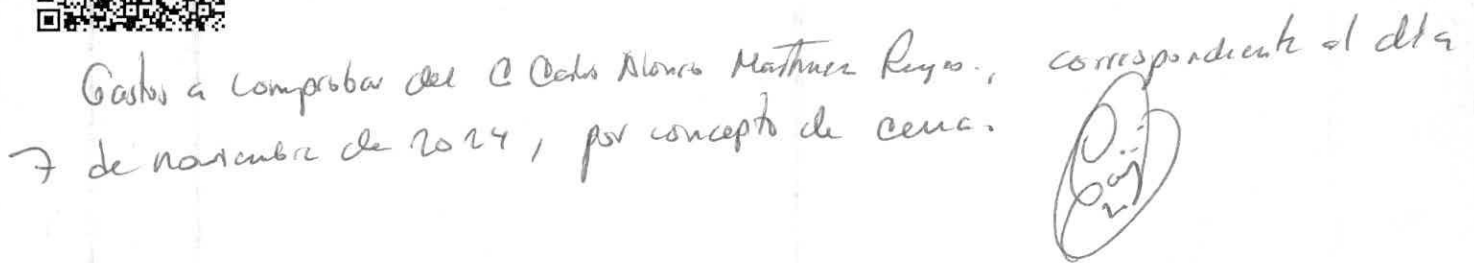 Gastos a comprobar del C Carlos Alonso Martínez Reyes., correspondiente al día
7 de noviembre de 2024, por concepto de cena.